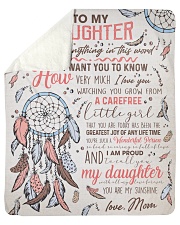 TO MY
DAUGHTER
Anything in this word
WANT YOU TO KNOW
How VERY MUCH I love you
WATCHING YOU GROW FROM
A CAREFREE
little girl
THAT YOU ARE TODAY HAS BEEN THE
GREATEST JOY OF ANY LIFE TIME
YOU'RE SUCH A Wonderful Person
AND I AM PROUD
to call you
my daughter
YOU ARE MY SUNSHINE
love, Mom